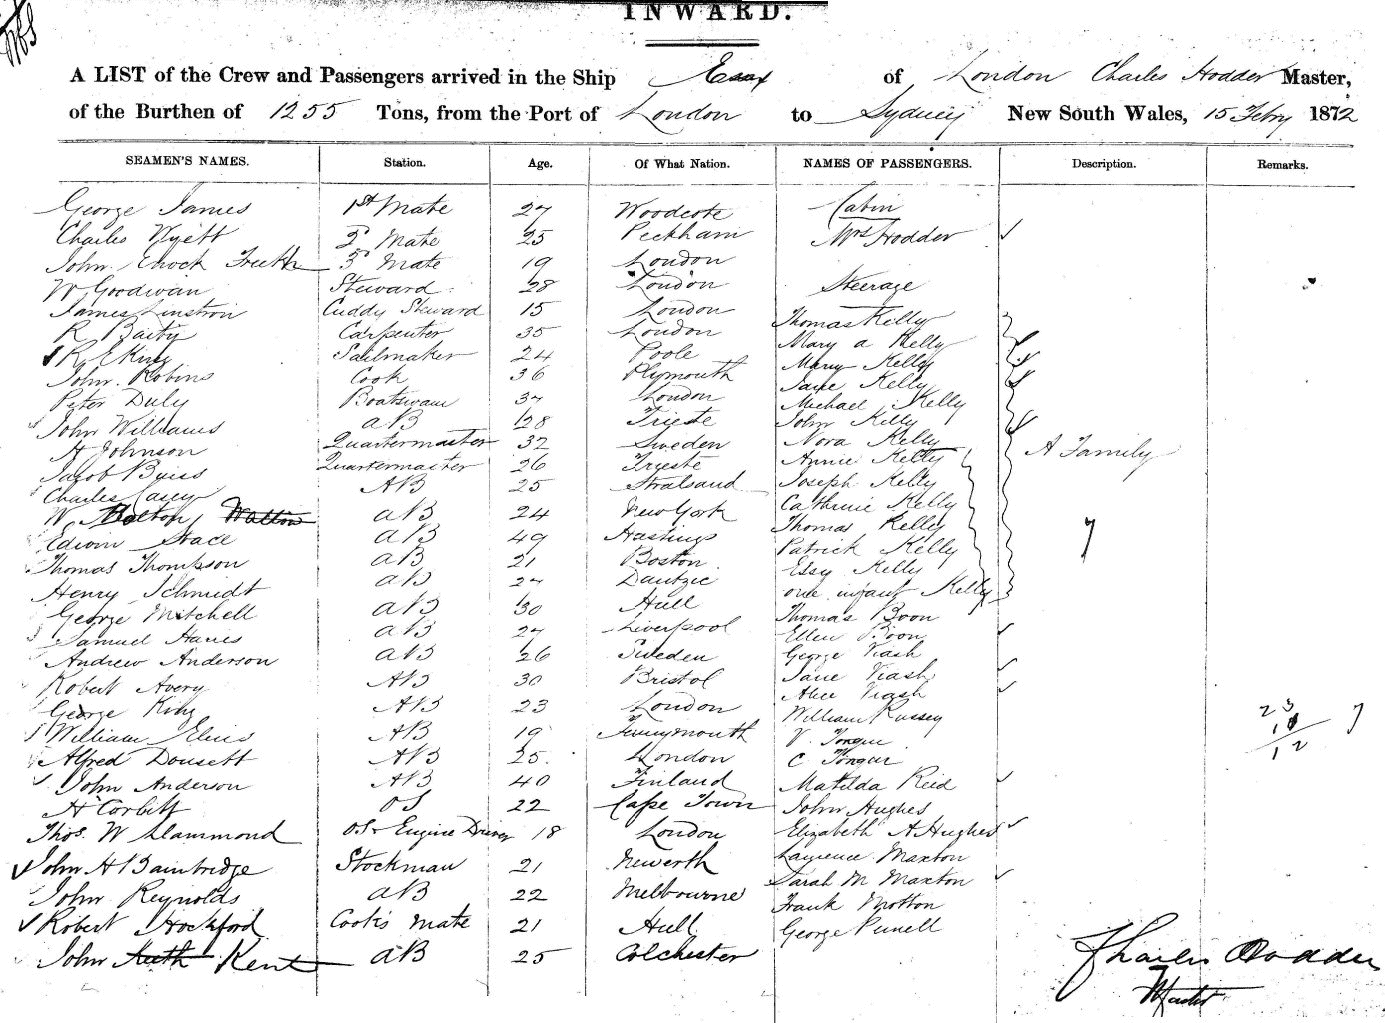 INWARD.
A LIST of the Crew and Passengers arrived in the Ship Essex of London Charles Hodder Master,
of the Burthen of 1255 Tons, from the Port of London to Sydney New South Wales, 15 Febry 1872
SEAMEN'S NAMES. Station. Age. Of What Nation. NAMES OF PASSENGERS. Description. Remarks.
George James 1st Mate 27 Woodcote Cabin
Charles Wyett 2d Mate 25 Peckham Mrs Hodder
John Enock 3d Mate 19 London
W Goodwan Steward 28 London Steerage
James Linstron Cuddy Steward 15 London Thomas Kelly
R Baity Carpenter 35 London Mary a Kelly
R E King Sailmaker 24 Poole Mary Kelly
John Robins Cook 36 Plymouth Jane Kelly
Peter Duly Boatswain 37 London Michael Kelly
John Williams aB 28 Trieste John Kelly
H Johnson Quartermaster 32 Sweden Nora Kelly A Family
Jacob Quartermaster 26 Trieste Annie Kelly
Charles Casey AB 25 Stralsund Joseph Kelly
W Bolton Walton aB 24 New York Cathrine Kelly
Edwin Stace aB 49 Hastings Thomas Kelly 7
Thomas Thompson aB 21 Boston Patrick Kelly
Henry Schmidt aB 27 Dantzic Essy Kelly
George Mitchell aB 30 Hull one infant Kelly
Samuel Hanes aB 27 Liverpool Thomas Boon
Andrew Anderson aB 26 Sweden Ellen Boon
Robert Avery AB 30 Bristol George Viash
George King AB 23 London Jane Viash
William Elius AB 19 Alice Viash
Alfred Dousett AB 25 London William Russey 23 7
John Anderson AB 40 Finland V. Tongue 12
H Corbett OS 22 Cape Town C Tongue
Thos. W Slammond OS & Engine Driver 18 London Matilda Reid
John H Bainbridge Stockman 21 Newerth John Hughes
John Reynolds aB 22 Melbourne Elizabeth A Hughes
Robert Hockford Cook's Mate 21 Hull Laurence Maxton
John Kent aB 25 Colchester Sarah M Maxton
Frank Motton
George Punell
Charles Hodder
Master